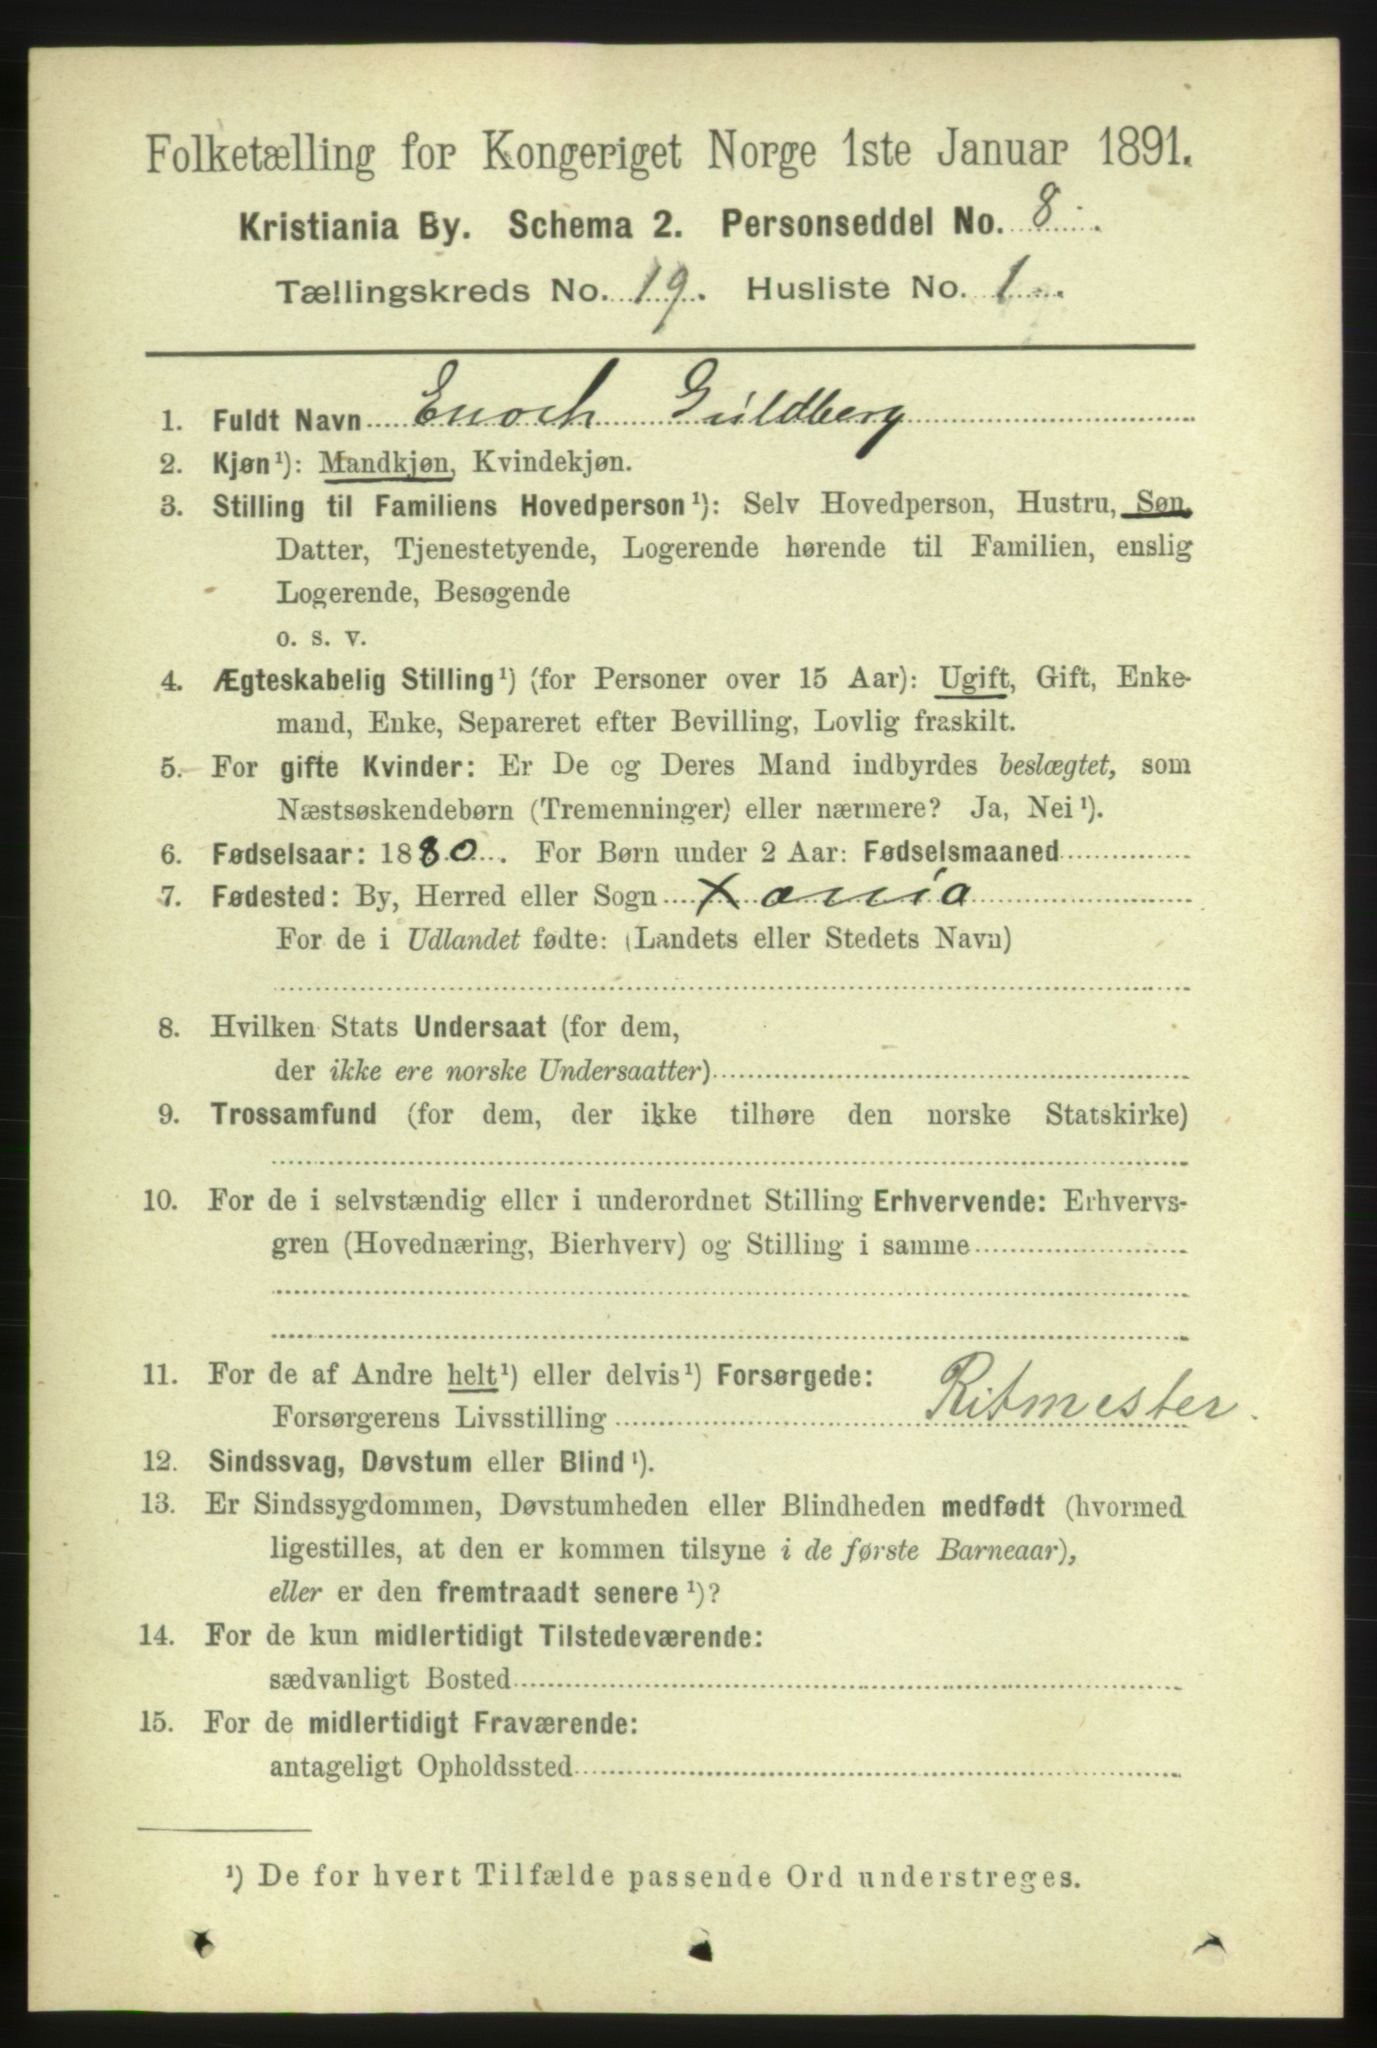 Folketælling for Kongeriget Norge 1ste Januar 1891.
Kristiania By. Schema 2. Personseddel No. 8.
Tællingskreds No. 19. Husliste No. 1.
1. Fuldt Navn Enoch Guldberg
2. Kjøn¹): Mandkjøn, Kvindekjøn.
3. Stilling til Familiens Hovedperson¹): Selv Hovedperson, Hustru, Søn,
Datter, Tjenestetyende, Logerende hørende til Familien, enslig
Logerende, Besøgende
o. s. v.
4. Ægteskabelig Stilling¹) (for Personer over 15 Aar): Ugift, Gift, Enke-
mand, Enke, Separeret efter Bevilling, Lovlig fraskilt.
5. For gifte Kvinder: Er De og Deres Mand indbyrdes beslægtet, som
Næstsøskendebørn (Tremenninger) eller nærmere? Ja, Nei¹).
6. Fødselsaar: 1880. For Børn under 2 Aar: Fødselsmaaned
7. Fødested: By, Herred eller Sogn Xania
For de i Udlandet fødte: (Landets eller Stedets Navn)
8. Hvilken Stats Undersaat (for dem,
der ikke ere norske Undersaatter)
9. Trossamfund (for dem, der ikke tilhøre den norske Statskirke)
10. For de i selvstændig eller i underordnet Stilling Erhvervende: Erhvervs-
gren (Hovednæring, Bierhverv) og Stilling i samme
11. For de af Andre helt¹) eller delvis¹) Forsørgede:
Forsørgerens Livsstilling Ritmester.
12. Sindssvag, Døvstum eller Blind¹).
13. Er Sindssygdommen, Døvstumheden eller Blindheden medfødt (hvormed
ligestilles, at den er kommen tilsyne i de første Barneaar),
eller er den fremtraadt senere¹)?
14. For de kun midlertidigt Tilstedeværende:
sædvanligt Bosted
15. For de midlertidigt Fraværende:
antageligt Opholdssted
¹) De for hvert Tilfælde passende Ord understreges.